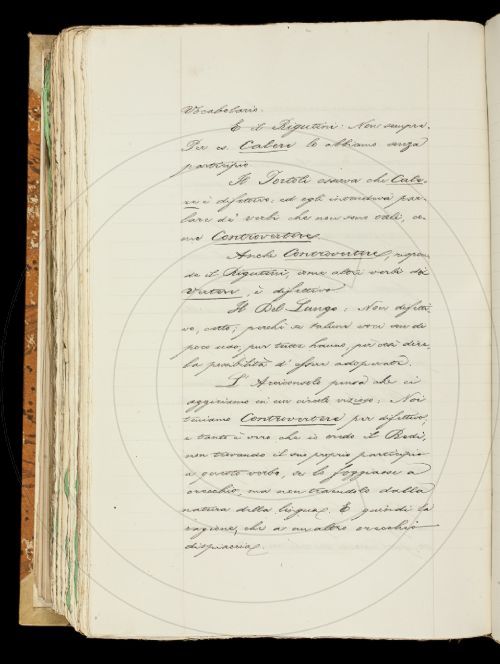 Vocabolario.
E il Rigutini: Non sempre.
Per es. Calere lo abbiamo senza
participio
Il Tortoli osserva che Cale-
re è difettivo: ed egli intendeva par-
lare de' verbi che non sono tali, co-
me Controvertere.
Anche Controvertere, rispon-
de il Rigutini, come altri verbi di
Vertere, è difettivo
Il Del Lungo: Non difetti-
vo, certo; perchè se talune voci son di
poco uso, pur tutte hanno, per così dire,
la possibilità d'essere adoperate.
L'Arciconsolo pensa che ci
aggiriamo in un circolo vizioso: Noi
teniamo Controvertere per difettivo;
e tanto è vero che io credo il Redi,
non trovando il suo proprio participio
a questo verbo, se lo foggiasse a
orecchio, ma non traendolo dalla
natura della lingua. E quindi la
ragione, che a un altro orecchio
dispiaccia.